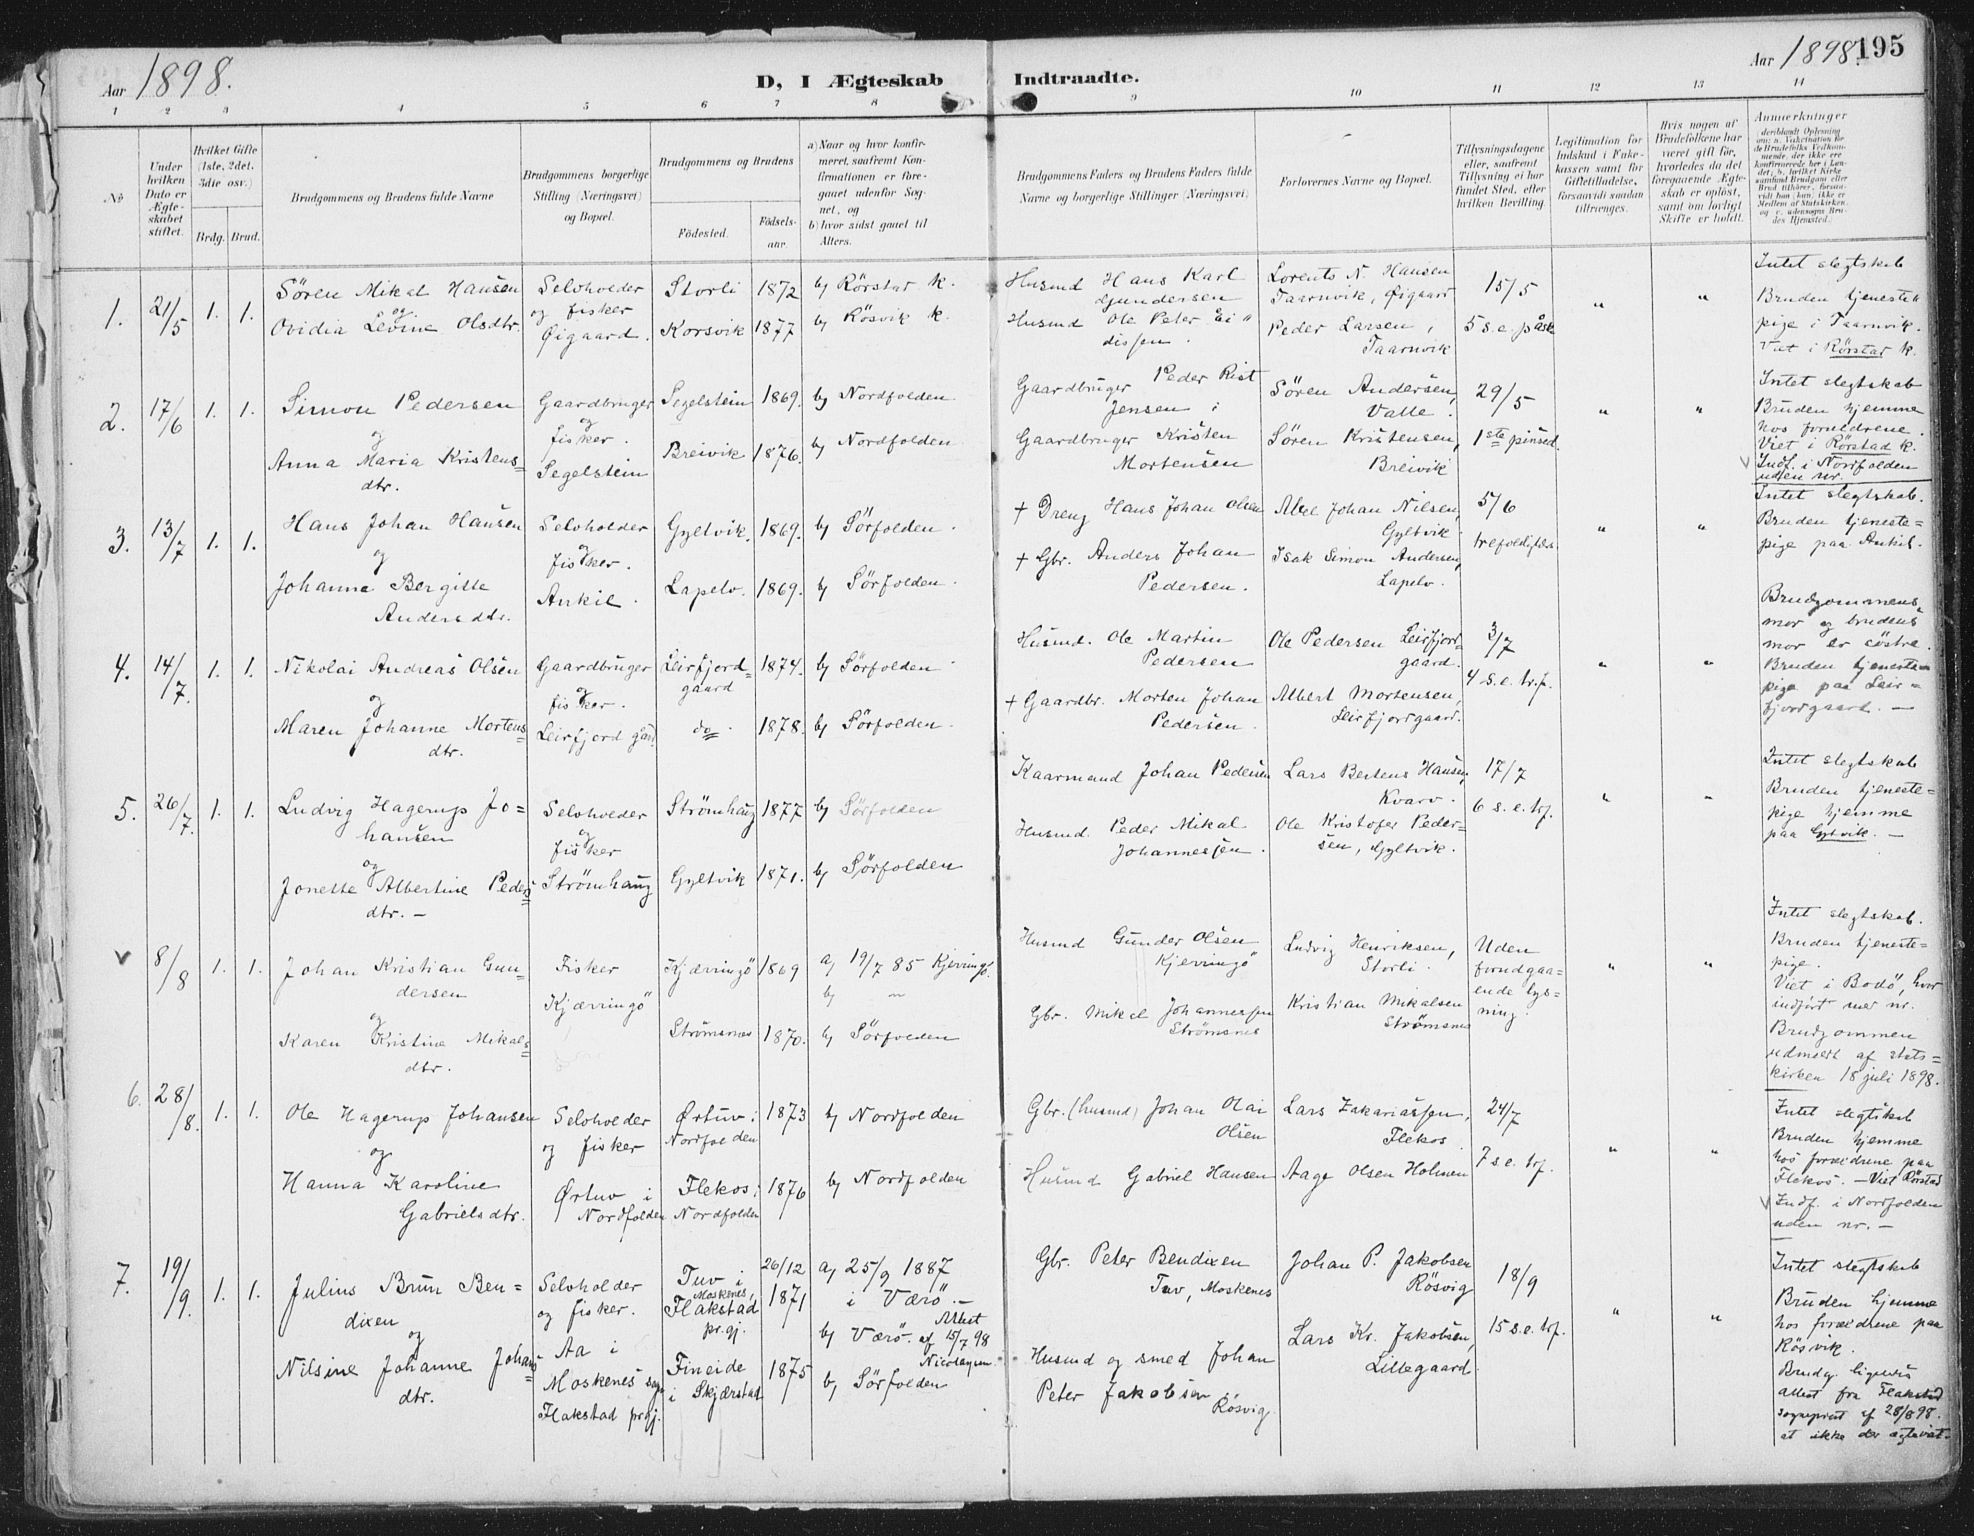 Aar 1898.
D, I Ægteskab Indtraadte.
Aar 1898. 195
1 2 3 4 5 6 7 8 9 10 11 12 13 14
No
Under hvilken Dato er Ægteskabet stiftet.
Hvilket Gifte (1ste, 2det, 3die osv.)
Brdg. Brud.
Brudgommens og Brudens fulde Navne
Brudgommens borgerlige Stilling (Næringsvei) og Bopæl.
Brudgommens og Brudens
Fødested.
Fødselsaar.
a) Naar og hvor konfirmeret, saafremt Konfirmationen er foregaaet udenfor Sognet, og
b) hvor sidst gaaet til Alters.
Brudgommens Faders og Brudens Faders fulde Navne og borgerlige Stillinger (Næringsvei)
Forlovernes Navne og Bopæl.
Tillysningsdagene eller, saafremt Tillysning ei har fundet Sted, efter hvilken Bevilling.
Legitimation for Indskud i Enkekassen samt for Giftetilladelse, forsaavidt saadan tiltrænges.
Hvis nogen af Brudefolkene har været gift før, hvorledes da det foregaaende Ægteskab er opløst, samt om lovligt Skifte er holdt.
Anmerkninger
1. 21/5 1. 1.
Sören Mikal Hansen
og
Ovidia Levine Olsdtr.
Selvholder
og fisker
Øigaard.
Storli 1872 b) Rörstad k.
Korsvik 1877 b) Rösvik k.
Husmd Hans Karl
Gundersen
Husmd Ole Peter Ei"
dissen.
Lorents N. Hansen
Taarnvik, Øigaard
Peder Larsen,
Taarnvik
15/5
5 s. e. påsk
" "
Intet slegtskab
Bruden tjeneste"
pige i Taarnvik.
Viet i Rörstad k.
2. 17/6 1. 1.
Simon Pedersen
og
Anna Maria Kristens=
dtr.
Gaardbruger
og
fisker.
Segelstein
Segelstein 1869. b) Nordfolden
Breivik 1876. b) Nordfolden
Gaardbruger Peder Rist
Jensen i
Gaardbruger Kristen
Mortensen
Sören Andersen,
Valle.
Sören Kristensen,
Breivik
29/5
1ste pinsed.
" "
Intet slegtskab
Bruden hjemme
hos foreldrene.
Viet i Rörstad k.
Indf. i Nordfolden
uden nr.
3. 13/7 1. 1.
Hans Johan Hansen
og
Johanna Bergitte
Andersdtr.
Selvholder
og
fisker.
Ankil.
Gyltvik. 1869. b) Sörfolden.
Lapelv. 1869. b) Sörfolden.
+ Dreng Hans Johan Olsen
+ Gbr. Anders Johan
Pedersen.
Abel Johan Nilsen,
Gyltvik.
Isak Simon Andersen,
Lapelv.
5/6
trefoldighds
" "
Intet slegtskab.
Bruden tjeneste=
pige paa Ankil.
4. 14/7. 1. 1.
Nikolai Andreas Olsen
og
Maren Johanne Mortens=
dtr.
Gaardbruger
og
fisker.
Leirfjord gård
Leirfjord= 1874. b) Sörfolden.
gaard
do. 1878. b) Sörfolden.
Husmd. Ole Martin
Pedersen
+ Gaardbr. Morten Johan
Pedersen.
Ole Pedersen Leirfjord
gaard.
Albert Mortensen,
Leirfjordgaard.
3/7
4 s. e. tr.f.
" "
Brudgommens
mor og brudens
mor er söstre.
Bruden tjeneste=
pige paa Leir=
fjordgaard. —
5. 26/7. 1. 1.
Ludvig Hagerup Jo=
hansen
og
Jonette Albertine Peders=
dtr. —
Selvholder
og
fisker
Strömhaug
Strömhaug 1877 b) Sörfolden
Gyltvik 1871. b) Sörfolden
Kaarmand Johan Pedersen
Husmd. Peder Mikal
Johannessen.
Lars Bertens Hansen,
Kvarv.
Ole Kristofer Peder=
sen, Gyltvik.
17/7
6 s. e. trf.
" "
Intet slegtskab
Bruden tjeneste=
pige hjemme
paa Gyltvik. —
8/8 1. 1.
Johan Kristian Gun=
dersen
og
Karen Kristine Mikals=
dtr.
Fisker
Kjærringö
Kjærringö 1869 a) 19/7 85 Kjerringö
b) —
Strömsnes 1870. b) Sörfolden
Husmd Gunder Olsen
Kjerringö
Gbr. Mikal Johannessen
Strömsnes
Ludvig Henriksen,
Storli.
Kristian Mikalsen
Strømsnes
Uden
forudgaa=
ende lys=
ning
" "
Intet slegtskab.
Bruden tjeneste=
pige.
Viet i Bodö, hvor
indført med nr.
Brudgommen
udmeldt af stats=
kirken 18 juli 1898.
6. 28/8. 1. 1.
Ole Hagerup Johansen
og
Hanna Karoline
Gabrielsdtr.
Selvholder
og fisker
Ørtuv i
Nordfolden
Ørtuv i 1873 b) Nordfolden
Nordfolden
Flekos i 1876 b) Nordfolden
Nordfolden
Gbr. (husmd) Johan Olai
Olsen
Husmd Gabriel Hansen
Lars Zakariassen,
Flekos
Aage Olsen Holmen
24/7
7 s. e. trf.
" "
Intet slegtskab
Bruden hjemme
hos foreldrene paa
Flekos. — Viet Rörstad
Indf. i Nordfolden
uden nr. —
7. 19/9. 1. 1.
Julius Brun Ben=
dixen
og
Nilsine Johanne Johans=
dtr.
Selvholder
og fisker.
Aa i
Moskenes sogn
Flakstad prgj.
Tuv i
Moskenes,
Flakstad
prgj.
26/12
1871
a) 25/9 1887
i Værö. —
b) Værö. Attest
af 15/7 98
Nicolaysen.
Fineide 1875 b) Sörfolden
i Skjærstad
Gbr. Peter Bendixen
Tuv, Moskenes
Husmd og smed Johan
Peter Jakobsen
Rösvig.
Johan P. Jakobsen
Rösvig
Lars Kr. Jakobsen,
Lillegaard.
18/9
15 s. e. trf.
" "
Intet slegtskab
Bruden hjemme
hos foreldrene paa
Rösvik.
Brudg. ligeviis
attest fra Flakstad
sogneprest af 28/8 98.
at ikke der ægteviet.